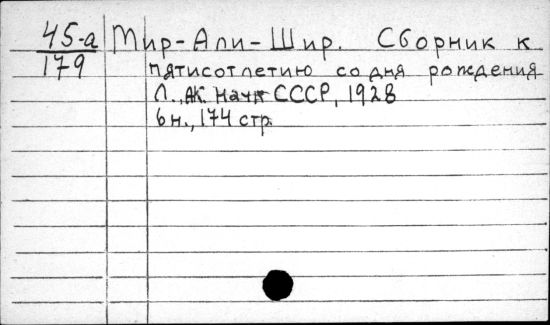 45-а Мир-Али-Шир. Сборник к
179 пятисотлетию со дня рождения
Л., АК. Наук СССР, 1928
6н., 174 стр.